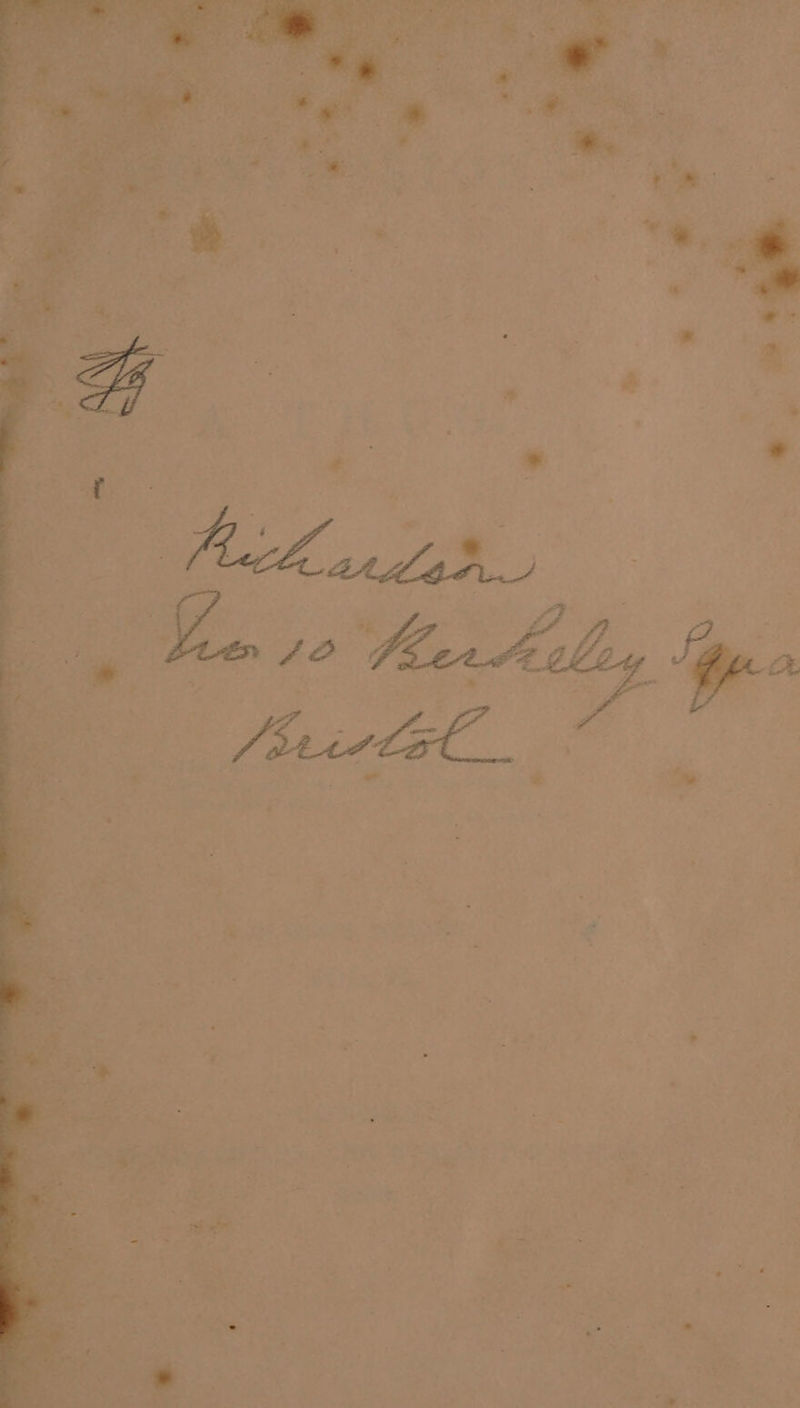 Richardson
10 Berkeley Squa
Bristol